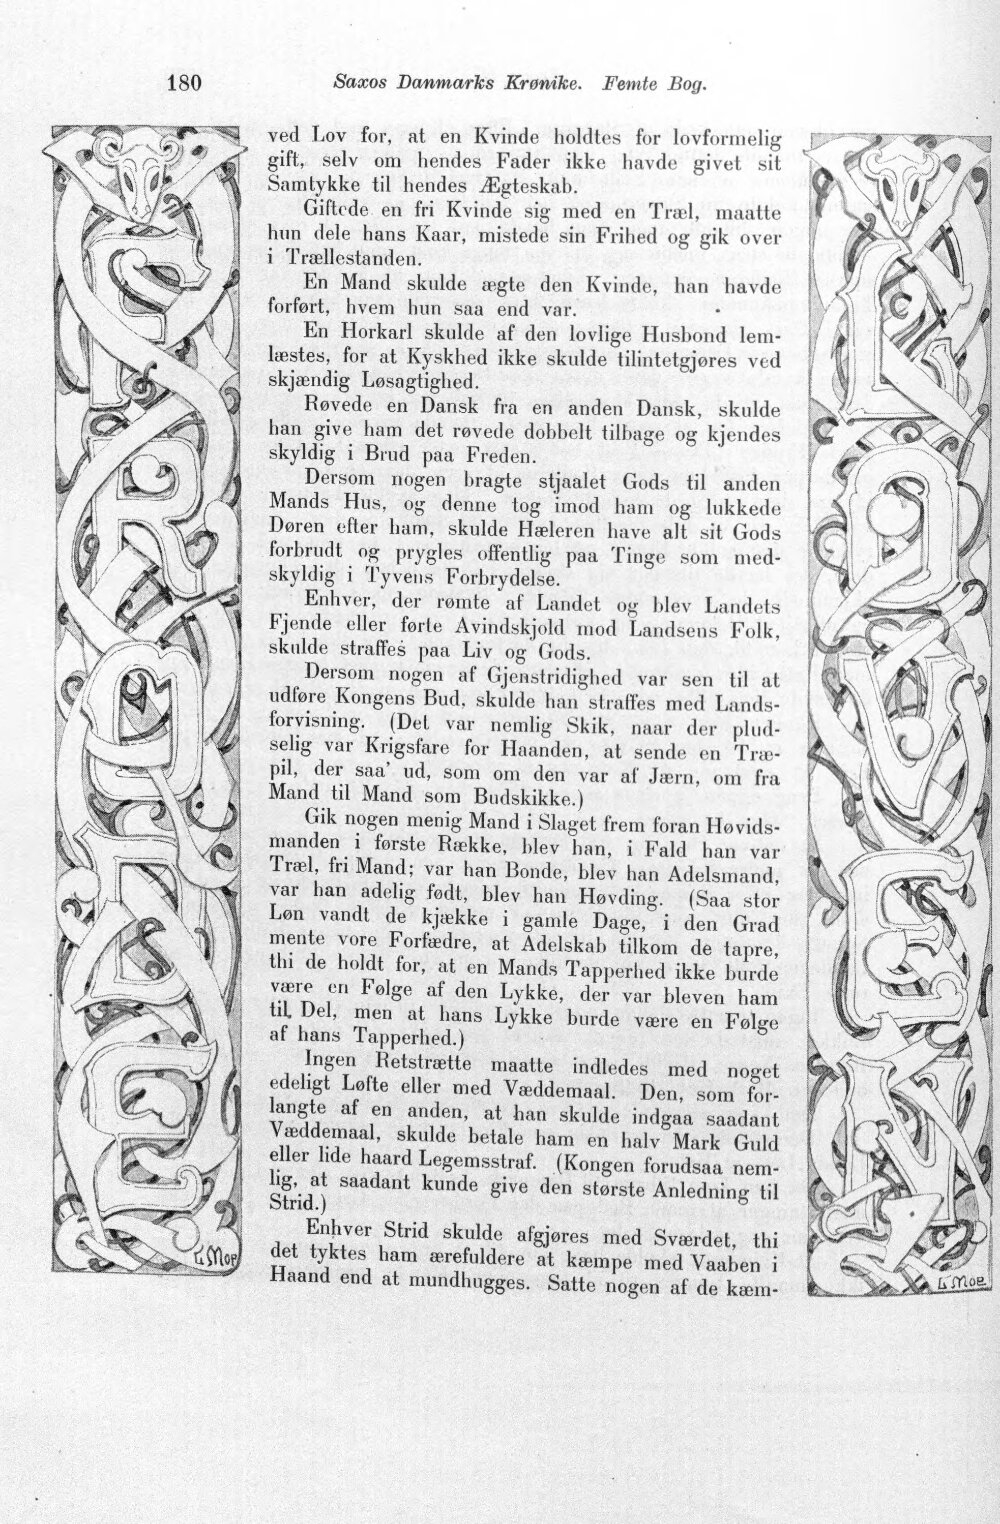 180
Saxos Danmarks Krønike. Femte Bog.
ved Lov for, at en Kvinde holdtes for lovformelig
gift, selv om hendes Fader ikke havde givet sit
Samtykke til hendes Ægteskab.
Giftede en fri Kvinde sig med en Træl, maatte
hun dele hans Kaar, mistede sin Frihed og gik over
i Trællestanden.
En Mand skulde ægte den Kvinde, han havde
forført, hvem hun saa end var.
En Horkarl skulde af den lovlige Husbond lem-
læstes, for at Kyskhed ikke skulde tilintetgjøres ved
skjændig Løsagtighed.
Røvede en Dansk fra en anden Dansk, skulde
han give ham det røvede dobbelt tilbage og kjendes
skyldig i Brud paa Freden.
Dersom nogen bragte stjaalet Gods til anden
Mands Hus, og denne tog imod ham og lukkede
Døren efter ham, skulde Hæleren have alt sit Gods
forbrudt og prygles offentlig paa Tinge som med-
skyldig i Tyvens Forbrydelse.
Enhver, der rømte af Landet og blev Landets
Fjende eller førte Avindskjold mod Landsens Folk,
skulde straffes paa Liv og Gods.
Dersom nogen af Gjenstridighed var sen til at
udføre Kongens Bud, skulde han straffes med Lands-
forvisning. (Det var nemlig Skik, naar der plud-
selig var Krigsfare for Haanden, at sende en Træ-
pil, der saa' ud, som om den var af Jærn, om fra
Mand til Mand som Budskikke.)
Gik nogen menig Mand i Slaget frem foran Høvids-
manden i første Række, blev han, i Fald han var
Træl, fri Mand; var han Bonde, blev han Adelsmand,
var han adelig født, blev han Høvding. (Saa stor
Løn vandt de kjække i gamle Dage, i den Grad
mente vore Forfædre, at Adelskab tilkom de tapre,
thi de holdt for, at en Mands Tapperhed ikke burde
være en Følge af den Lykke, der var bleven ham
til Del, men at hans Lykke burde være en Følge
af hans Tapperhed.)
Ingen Retstrætte maatte indledes med noget
edeligt Løfte eller med Væddemaal. Den, som for-
langte af en anden, at han skulde indgaa saadant
Væddemaal, skulde betale ham en halv Mark Guld
eller lide haard Legemsstraf. (Kongen forudsaa nem-
lig, at saadant kunde give den største Anledning til
Strid.)
Enhver Strid skulde afgjøres med Sværdet, thi
det tyktes ham ærefuldere at kæmpe med Vaaben i
Haand end at mundhugges. Satte nogen af de kæm-
FRODE
LOVGEK
L Moe
L Moe